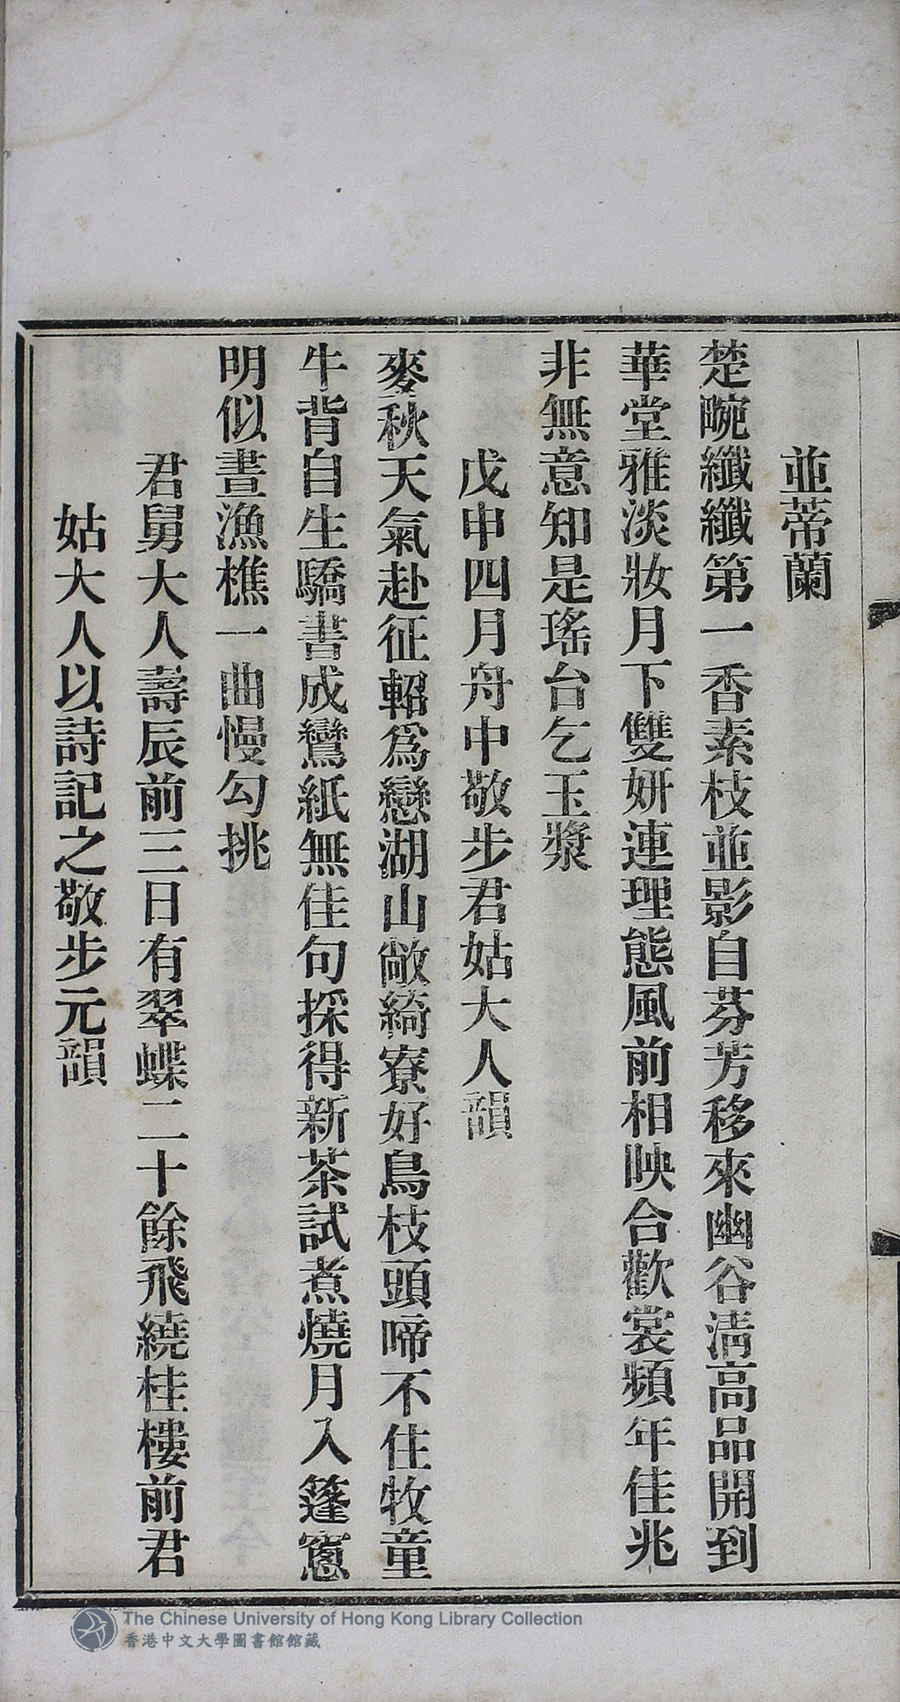 並蒂蘭
楚畹纖纖第一香素枝並影自芬芳移來幽谷淸高品開到
華堂雅淡妝月下雙妍連理態風前相映合歡裳頻年佳兆
非無意知是瑤台乞玉漿
戊申四月舟中敬步君姑大人韻
麥秋天氣赴征軺爲戀湖山敞綺寮好鳥枝頭啼不住牧童
牛背自生驕書成鸞紙無佳句採得新茶試煮燒月入篷窻
明似晝漁樵一曲慢勾挑
君舅大人壽辰前三日有翠蝶二十餘飛繞桂樓前君
姑大人以詩記之敬步元韻
The Chinese University of Hong Kong Library Collection
香港中文大學圖書館館藏